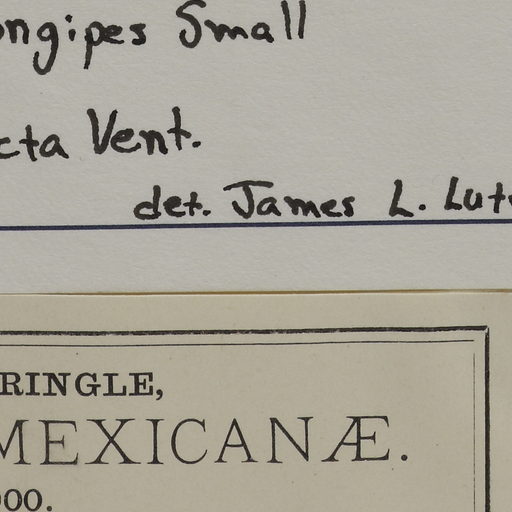 ongipes Small
cta Vent.
det. James L. Lut
RINGLE,
MEXICANÆ.
00.